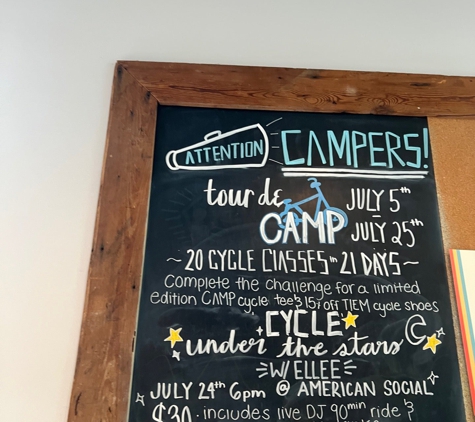 ATTENTION CAMPERS!
tour de CAMP
JULY 5th
-
JULY 25th
~ 20 CYCLE CLASSES in 21 DAYS ~
Complete the challenge for a limited
edition CAMP cycle tee & 15% off TIEM cycle shoes
CYCLE
under the stars
W/ ELLEE
JULY 24th 6pm @ AMERICAN SOCIAL
$30 · includes live DJ 90min ride &